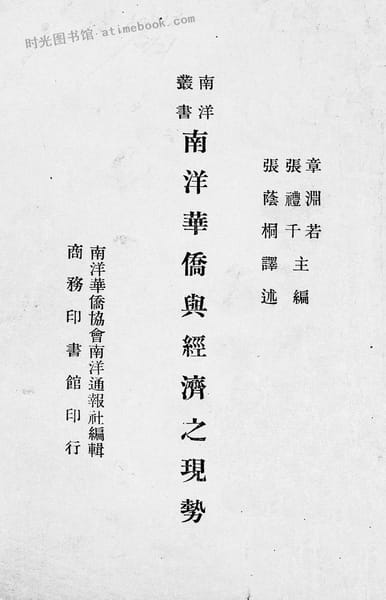 时光图书馆·atimebook.com
章淵若
張禮千主編
張蔭桐譯述
南洋
叢書
南洋華僑與經濟之現勢
南洋華僑協會南洋通報社編輯
商務印書館印行